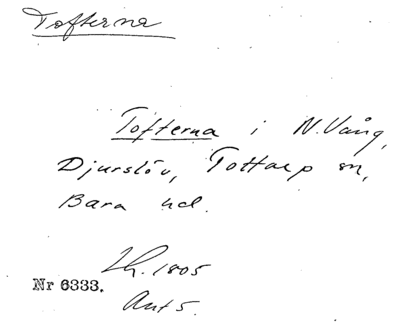 Tofterna
Tofterna i N. Vång,
Djurslöv, Tottarp sn,
Bara hd.
Lh. 1805
Nr 6333.
Ant 5.